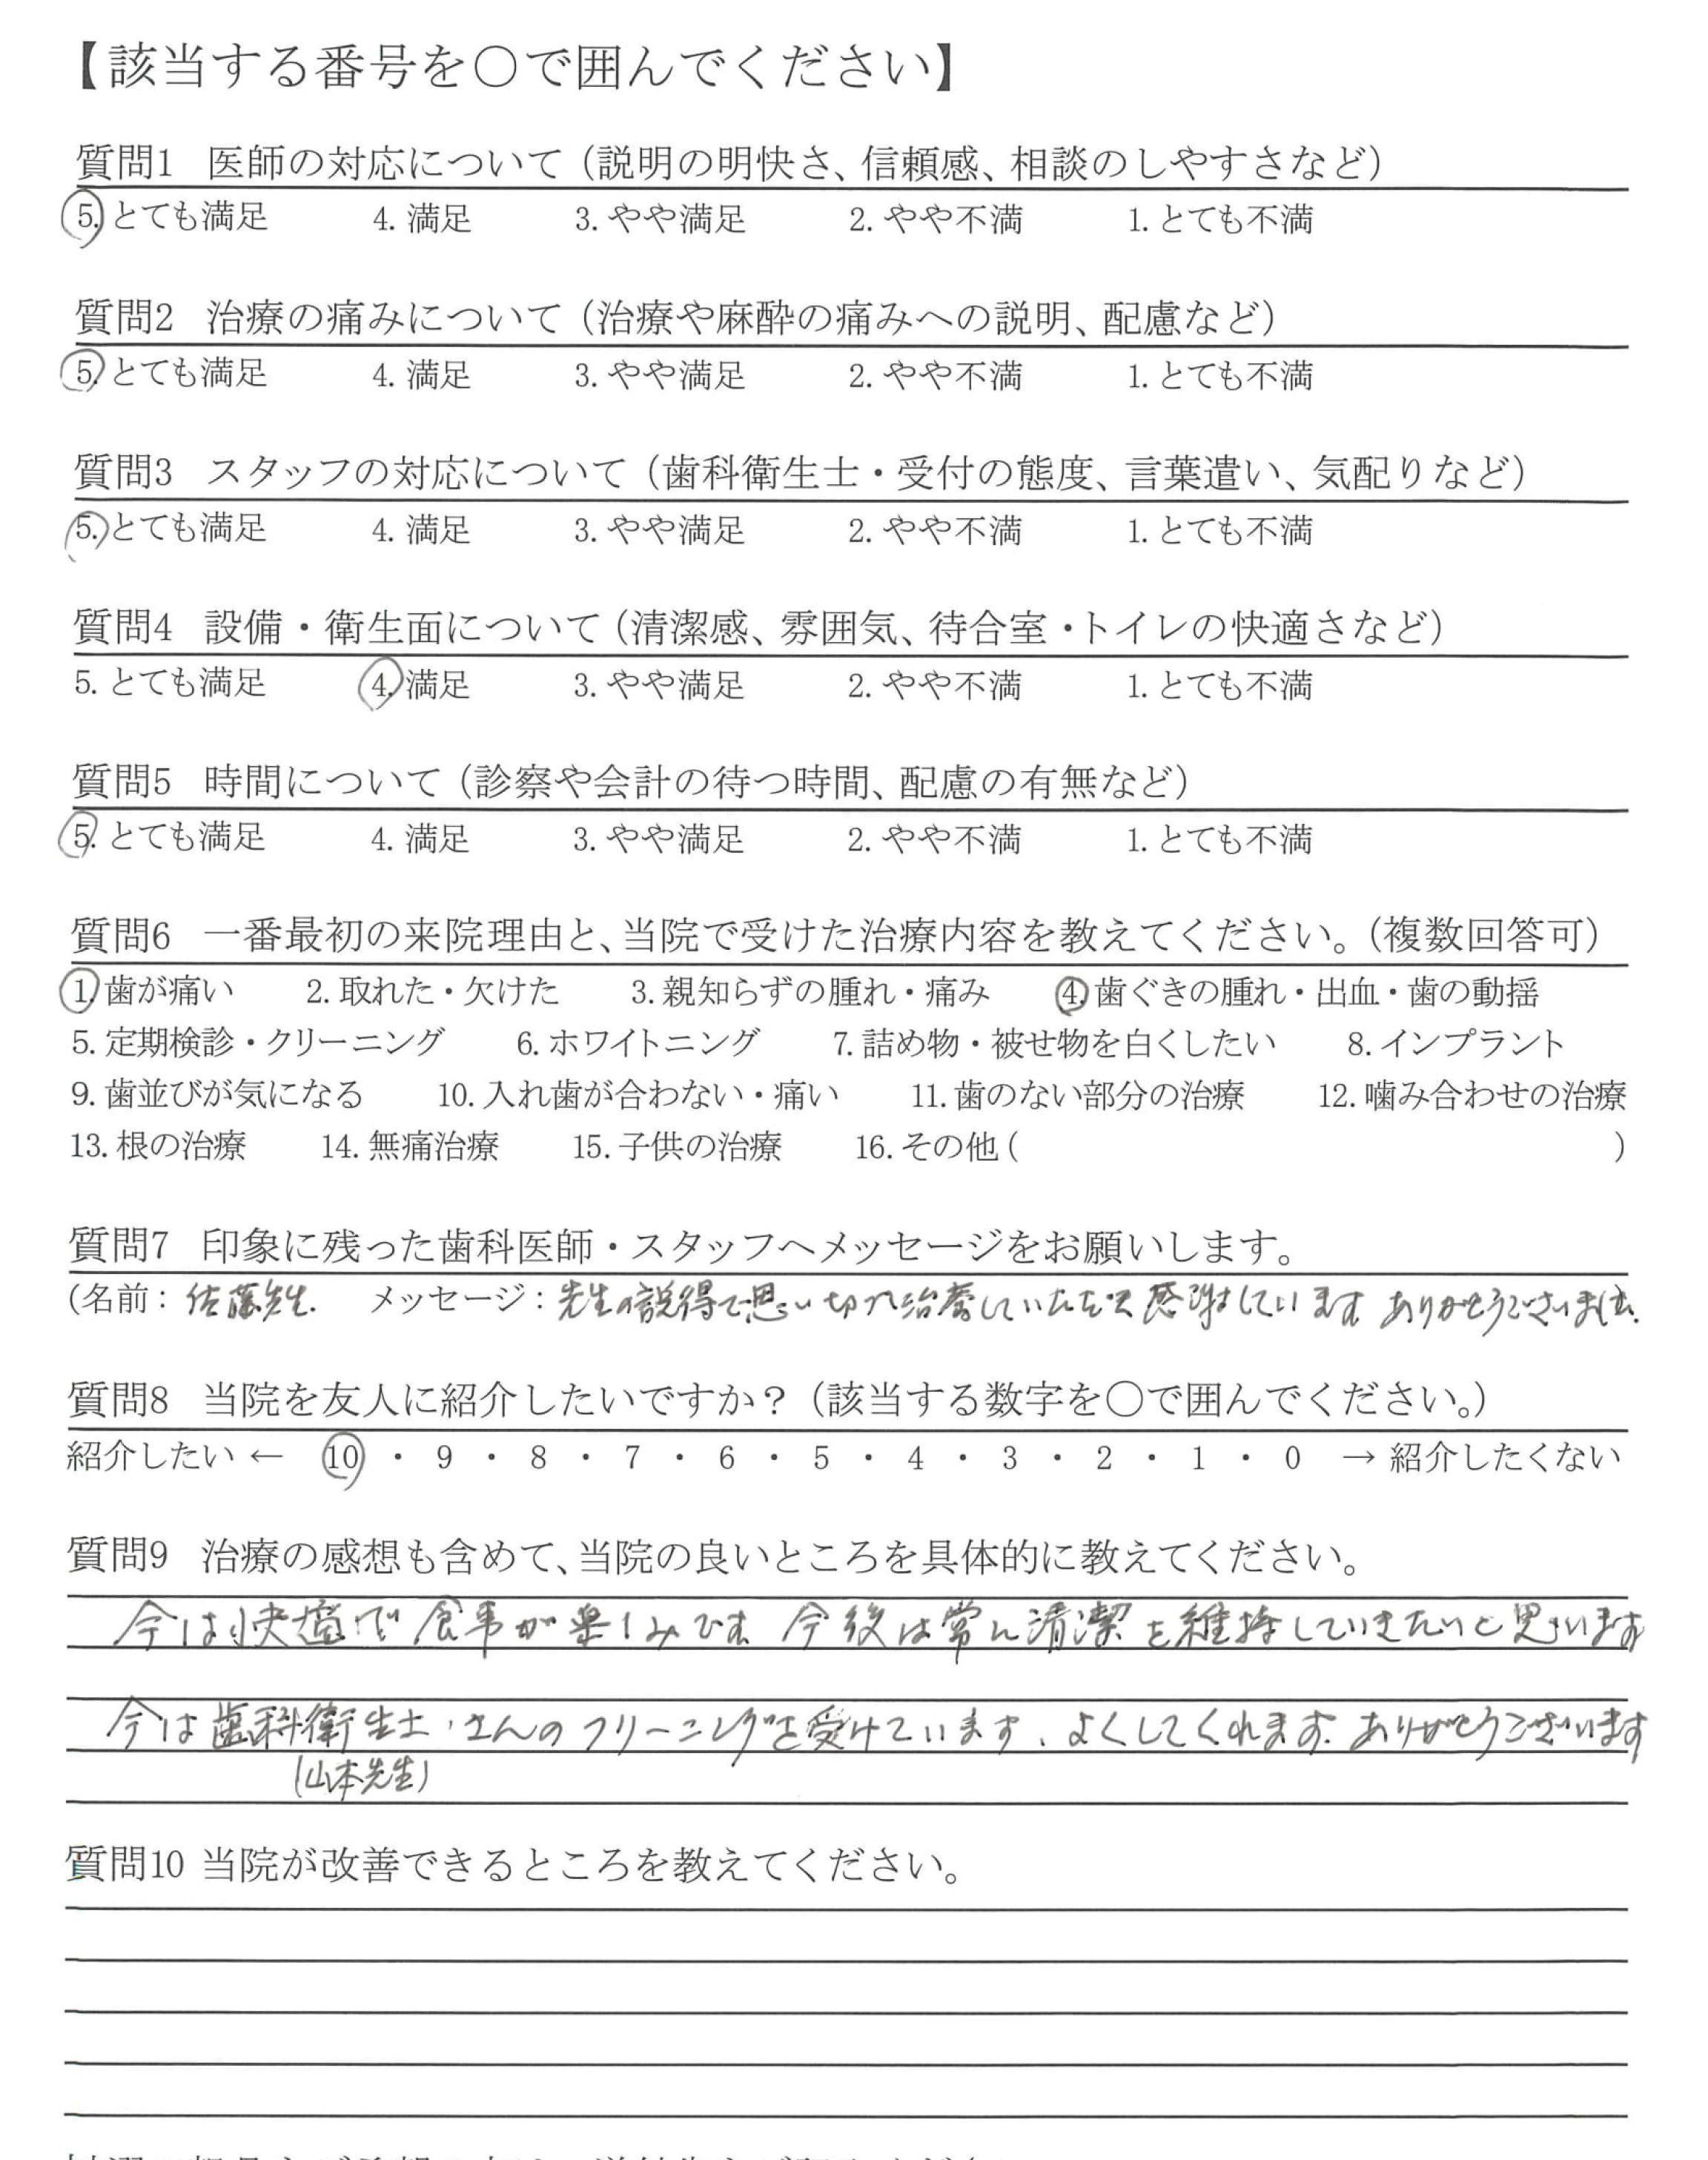 【該当する番号を〇で囲んでください】
質問1 医師の対応について（説明の明快さ、信頼感、相談のしやすさなど）
5. とても満足 4. 満足 3. やや満足 2. やや不満 1. とても不満
質問2 治療の痛みについて（治療や麻酔の痛みへの説明、配慮など）
5. とても満足 4. 満足 3. やや満足 2. やや不満 1. とても不満
質問3 スタッフの対応について（歯科衛生士・受付の態度、言葉遣い、気配りなど）
5. とても満足 4. 満足 3. やや満足 2. やや不満 1. とても不満
質問4 設備・衛生面について（清潔感、雰囲気、待合室・トイレの快適さなど）
5. とても満足 4. 満足 3. やや満足 2. やや不満 1. とても不満
質問5 時間について（診察や会計の待つ時間、配慮の有無など）
5. とても満足 4. 満足 3. やや満足 2. やや不満 1. とても不満
質問6 一番最初の来院理由と、当院で受けた治療内容を教えてください。（複数回答可）
1. 歯が痛い 2. 取れた・欠けた 3. 親知らずの腫れ・痛み 4. 歯ぐきの腫れ・出血・歯の動揺
5. 定期検診・クリーニング 6. ホワイトニング 7. 詰め物・被せ物を白くしたい 8. インプラント
9. 歯並びが気になる 10. 入れ歯が合わない・痛い 11. 歯のない部分の治療 12. 噛み合わせの治療
13. 根の治療 14. 無痛治療 15. 子供の治療 16. その他（ ）
質問7 印象に残った歯科医師・スタッフへメッセージをお願いします。
（名前：佐藤先生. メッセージ：先生の説得で思い切れ治療していただき感謝しています ありがとうございました.）
質問8 当院を友人に紹介したいですか？（該当する数字を〇で囲んでください。）
紹介したい ← 10 ・ 9 ・ 8 ・ 7 ・ 6 ・ 5 ・ 4 ・ 3 ・ 2 ・ 1 ・ 0 → 紹介したくない
質問9 治療の感想も含めて、当院の良いところを具体的に教えてください。
今は快適で食事が楽しみです 今後は常に清潔を維持していきたいと思います
今は歯科衛生士さんのクリーニングを受けています、よくしてくれます. ありがとうございます
（山本先生）
質問10 当院が改善できるところを教えてください。